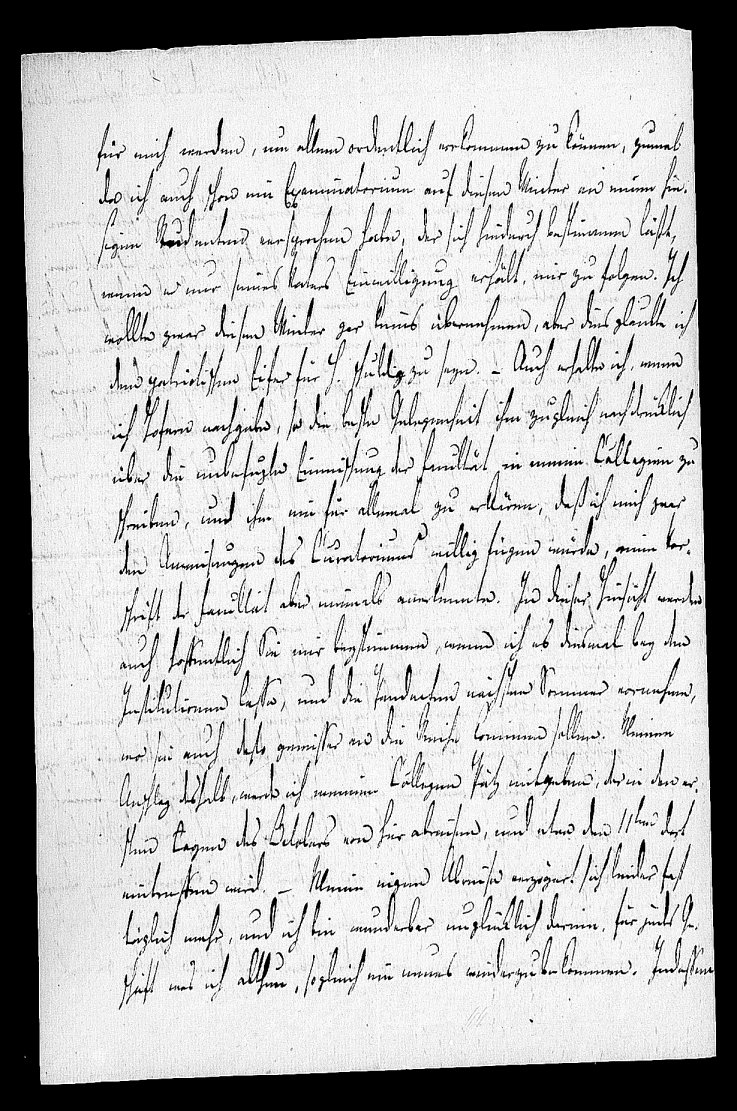 für mich werden, um allem ordentlich vorkommen zu können, zumal
da ich auch schon ein Examinatorium auf diesen Winter an einen hie-
sigen Studenten versprochen habe, der sich hindurch bestimmen läßt,
wenn er nur seines Vaters Einwilligung erhält, mir zu folgen. Ich
wollte zwar diesen Winter gar keins übernehmen, aber dies glaubte ich
dem patriotischen Eifer für H. schuldig zu seyn. – Auch erhalte ich, wenn
ich nachgebe, so die beste Gelegenheit ihm zugleich nachdrücklich
über die unbefugte Einmischung der Facultät in meine Collegien zu
schreiben, und ihm ein für allemal zu erklären, daß ich mich zwar
den Anweisungen des Curatoriums willig fügen würde, eine Vor-
schrift der Facultät aber niemals anerkennte. In dieser Hinsicht werden
auch hoffentlich Sie mir beystimmen, wenn ich es diesmal bey den
Institutionen lasse, und die Pandecten nächsten Sommer vornehme,
wo sie auch desto gewisser an die Reihe kommen sollen. Meinen
Anschlag deshalb, werde ich meinem Collegen Pätz mitgeben, der in den er-
sten Tagen des Octobers von hier abreisen, und etwa den 11ten dort
eintreffen wird. – Meine eigene Abreise verzögert sich leider fast
täglich mehr, und ich bin wunderbar unglücklich darin, für jedes Ge-
schäft was ich abthue, sogleich ein neues wiederzubekommen. Indessen